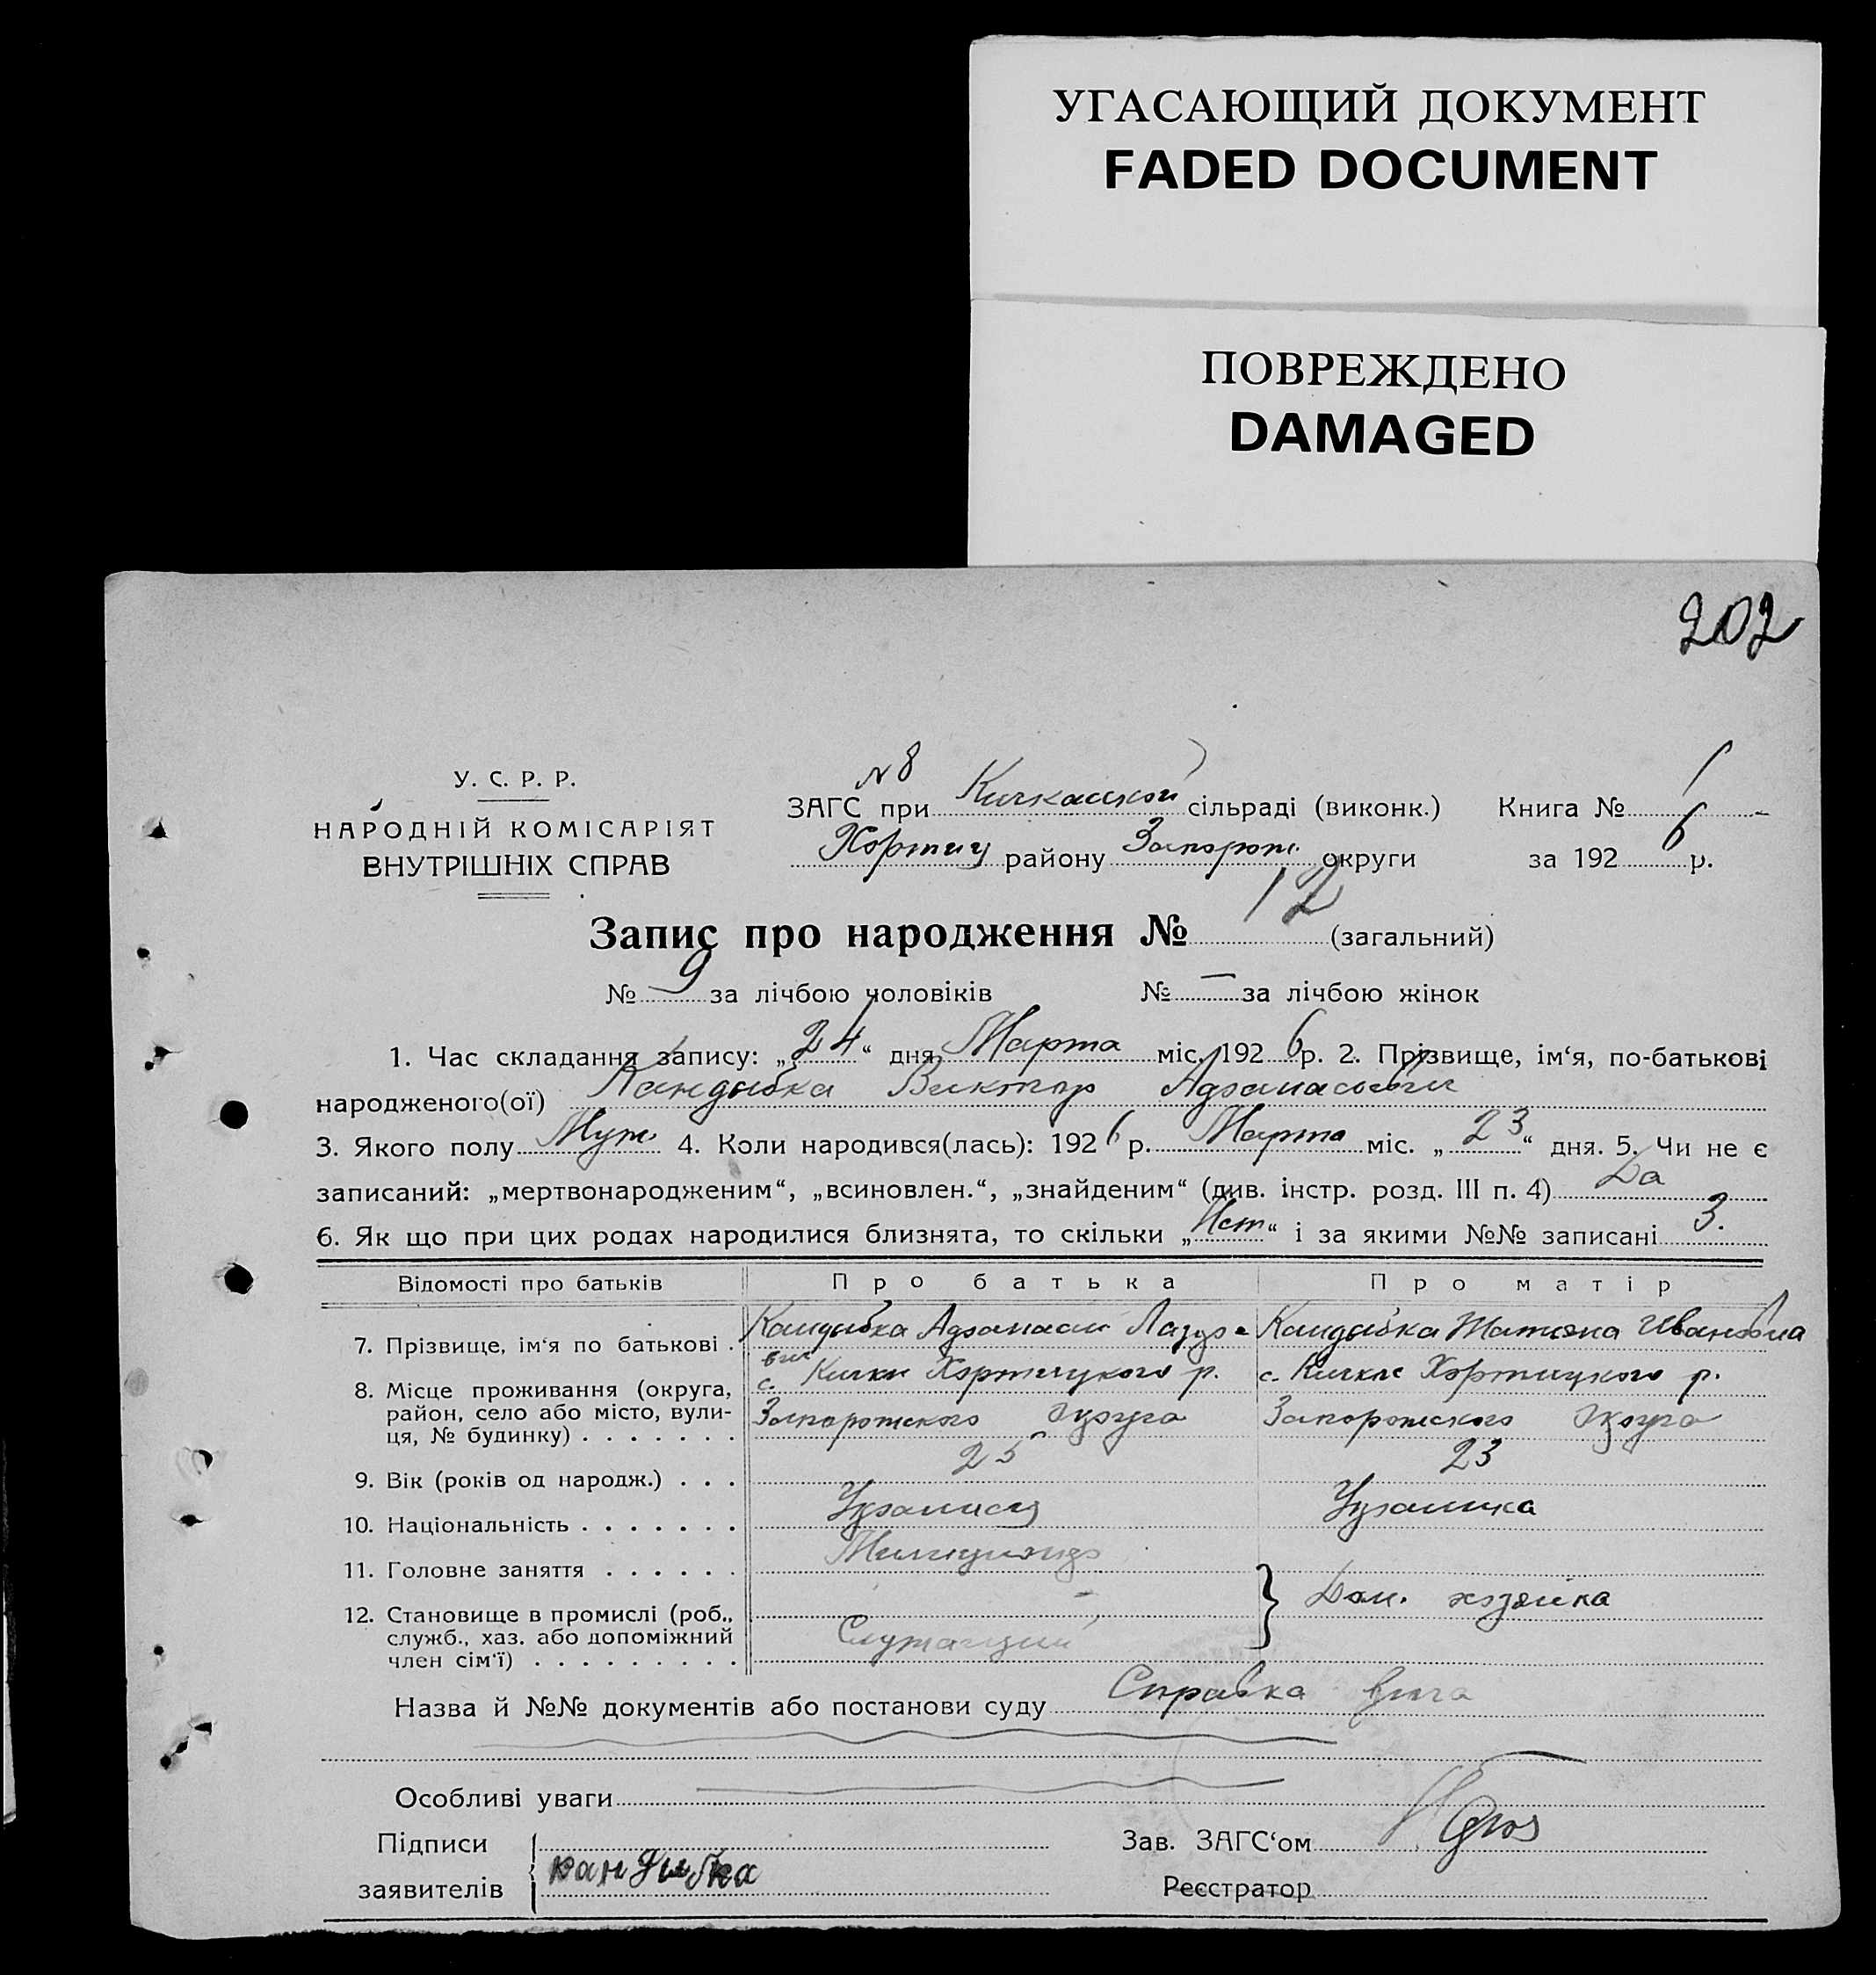 УГАСАЮЩИЙ ДОКУМЕНТ
FADED DOCUMENT
ПОВРЕЖДЕНО
DAMAGED
202
У. С. Р. Р.
НАРОДНІЙ КОМІСАРІЯТ
ВНУТРІШНІХ СПРАВ
N 8
ЗАГС при Кичкасской сільраді (виконк.) Книга № 1
Хортиц району Запорож. округи за 1926 р.
Запис про народження № 12 (загальний)
№ 9 за лічбою чоловіків № — за лічбою жінок
1. Час складання запису: „24“ дня Марта міс. 1926 р. 2. Прізвище, ім‘я, по-батькові
народженого(ої) Кандыбка Виктор Афанасьевич
3. Якого полу Муж. 4. Коли народився(лась): 1926 р. Марта міс. „23“ дня. 5. Чи не є
записаний: „мертвонародженим“, „всиновлен.“, „знайденим“ (див. інстр. розд. III п. 4) Да
6. Як що при цих родах народилися близнята, то скільки „Нет“ і за якими №№ записані 3.
Відомості про батьків Про батька Про матір
7. Прізвище, ім‘я по батькові . Кандыбка Афанасий Лазаре- Кандыбка Татьяна Ивановна
вич
8. Місце проживання (округа, с. Кичкас Хортицкого р. с. Кичкас Хортицкого р.
район, село або місто, вули- Запорожского Округа Запорожского Округа
ця, № будинку) . . . . . . .
9. Вік (років од народж.) . . . 25 23
10. Національність . . . . . . . Украинец Украинка
11. Головне заняття . . . . . . Милиционер
12. Становище в промислі (роб., — Дом. хозяйка
служб., хаз. або допоміжний Служащий
член сім‘ї) . . . . . . . . .
Назва й №№ документів або постанови суду Справка врача
Особливі уваги
Підписи Зав. ЗАГС‘ом
заявителів кандыбка Реєстратор